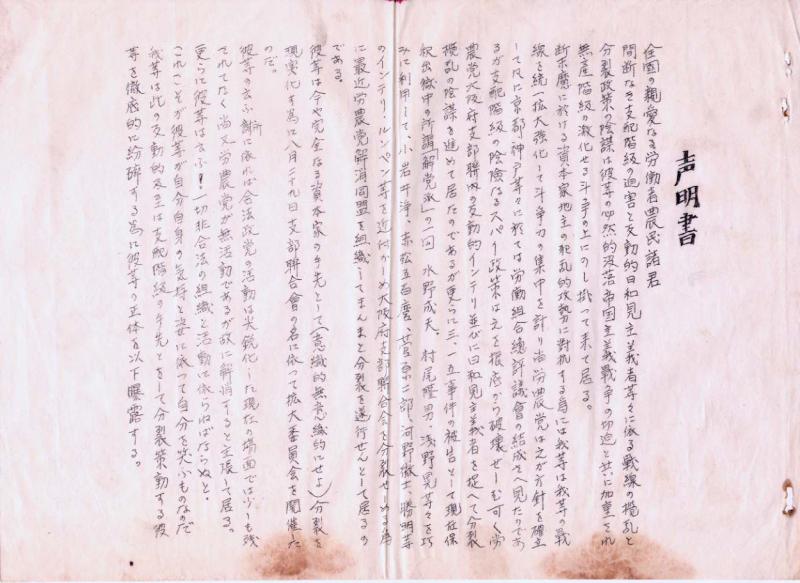 声明書
全国の親愛なる労働者農民諸君
間断なき支配階級の迫害と反動的日和見主義者等々に依る戦線の攪乱と
分裂政策の陰謀は彼等の必然的没落帝国主義戦争の切迫と共に加重され
無産階級の激化せる斗争の上にのし掛って来て居る。
断末魔に於ける資本家地主の狂乱的攻勢に対抗する為には我等は我等の戦
線を統一拡大強化して斗争力の集中を計り尚労農党は之が方針を確立
して凡に京都神戸等々に於ては労働組合総評議會の結成さへ見たのであ
るが支配階級の陰険なるスパイ政策は之を根底から破壊せしむ可く労
農党大阪府支部聯内の反動的インテリ並びに日和見主義者を捉へて分裂
攪乱の陰謀を進めて居たのであるが更らに三、一五事件の被告として現在保
釈出獄中の所謂「解党派」の一団 水野成夫、村尾薩男、浅野晃等々を巧
みに利用して、小岩井浄、赤松五百麿、菅原二郎、河野徹士、勝明等
のインテリ・ルンペン等を近付かしめ大阪府支部聯合会を分裂せしめる為
に最近労農党解消同盟を組織してまんまと分裂を遂行せんとして居るの
である。
彼等は今や完全なる資本家の手先として(意識的無意識的にせよ)分裂を
現実化する為に八月二十九日支部聯合會の名に依って拡大委員会を開催した
のだ。
彼等の云ふ所に依れば合法政党の活動は尖鋭化した現在の場面では少しも残
されてなく尚又労農党が無活動であるが故に解消すると主張して居る。
更らに彼等は云ふ！一切非合法の組織と活動に依らねばならぬと。
これこそが彼等が自分自身の気持と姿に依って自分を笑ふものなのだ
我等は此の反動的又は支配階級の手先となをして分裂策動する彼
等を徹底的に紛砕する為に彼等の正体を以下曝露する。